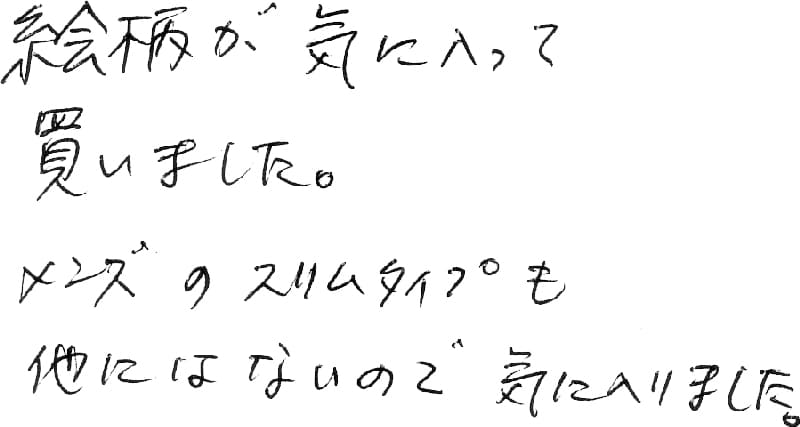 絵柄が気に入って
買いました。
メンズのスリムタイプも
他にはないので気に入りました。